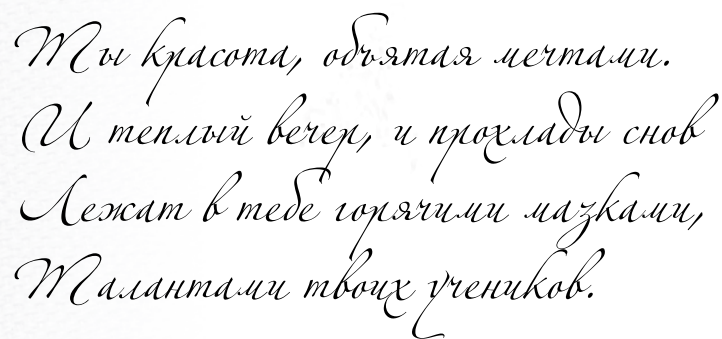 Ты красота, объятая мечтами.
И теплый вечер, и прохлады снов
Лежат в тебе горячими мазками,
Талантами твоих учеников.